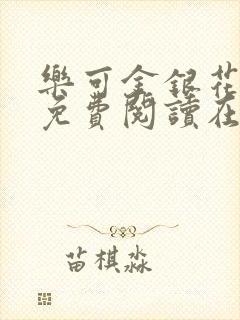 樂可金銀花
免費閱讀在
苗棋淼